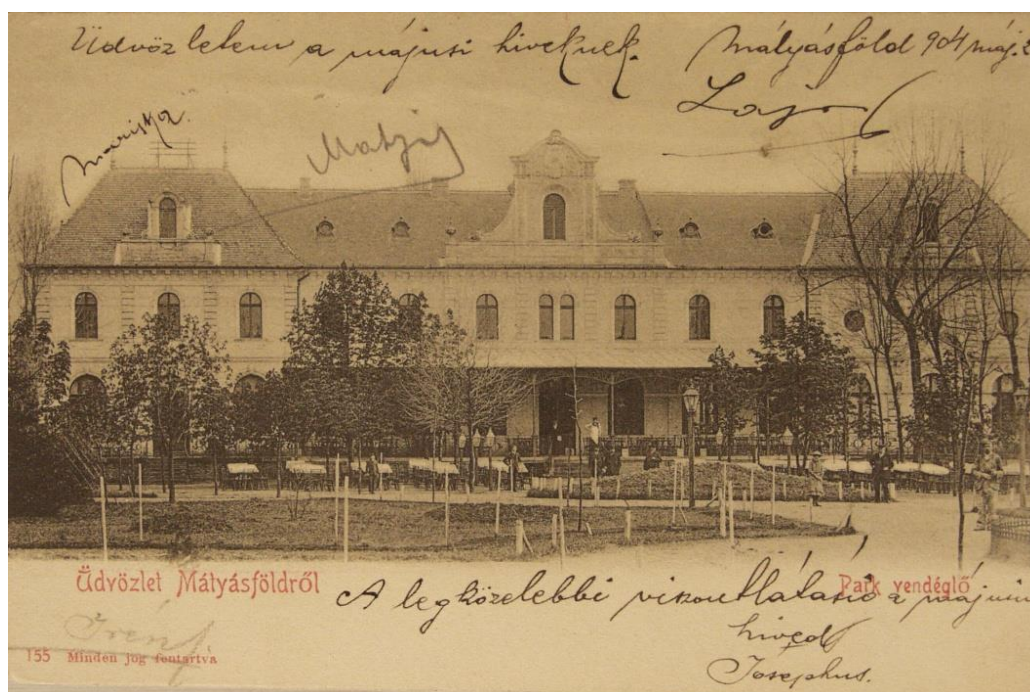 Üdvözletem a májusi hiveknek. Mátyásföld 904 máj.
Lajos
Mariska
Matzij
Üdvözlet Mátyásföldről
Park vendéglő
A legközelebbi viszontlátásig a májusi
hived
Josephus.
Iren
155 Minden jog fentartva